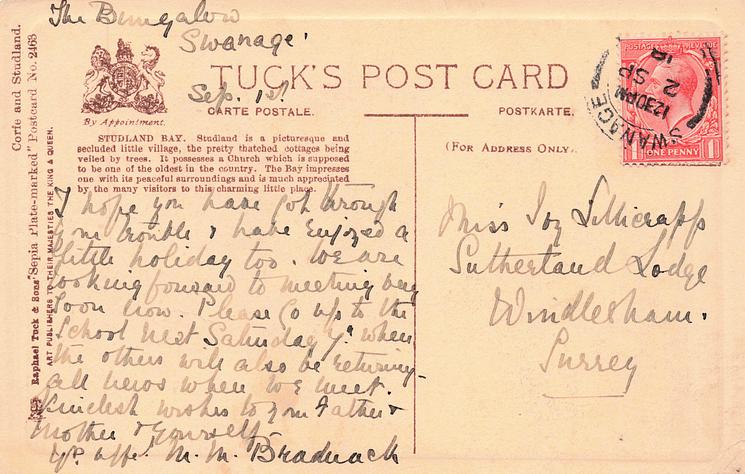 The Bungalow
Swanage.
Sep. 1st.
TUCK'S POST CARD
CARTE POSTALE. POSTKARTE.
By Appointment.
(FOR ADDRESS ONLY.
STUDLAND BAY. Studland is a picturesque and
secluded little village, the pretty thatched cottages being
veiled by trees. It possesses a Church which is supposed
to be one of the oldest in the country. The Bay impresses
one with its peaceful surroundings and is much appreciated
by the many visitors to this charming little place.
I hope you have got through
your trouble & have enjoyed a
little holiday too. We are
looking forward to meeting very
soon now. Please go up to the
School next Saturday 7th when
the others will also be returning
all news when we meet.
Kindest wishes to your Father &
Mother & Yourself
Yr. affec. M. M.
Miss Joy
Sutherland Lodge
Windlesham.
Surrey
Corfe and Studland.
Raphael Tuck & Sons' "Sepia Plate-marked" Postcard No. 2468
ART PUBLISHERS TO THEIR MAJESTIES THE KING & QUEEN.
POSTAGE REVENUE
1 ONE PENNY 1
SWANAGE
12.30PM
2 SP
18